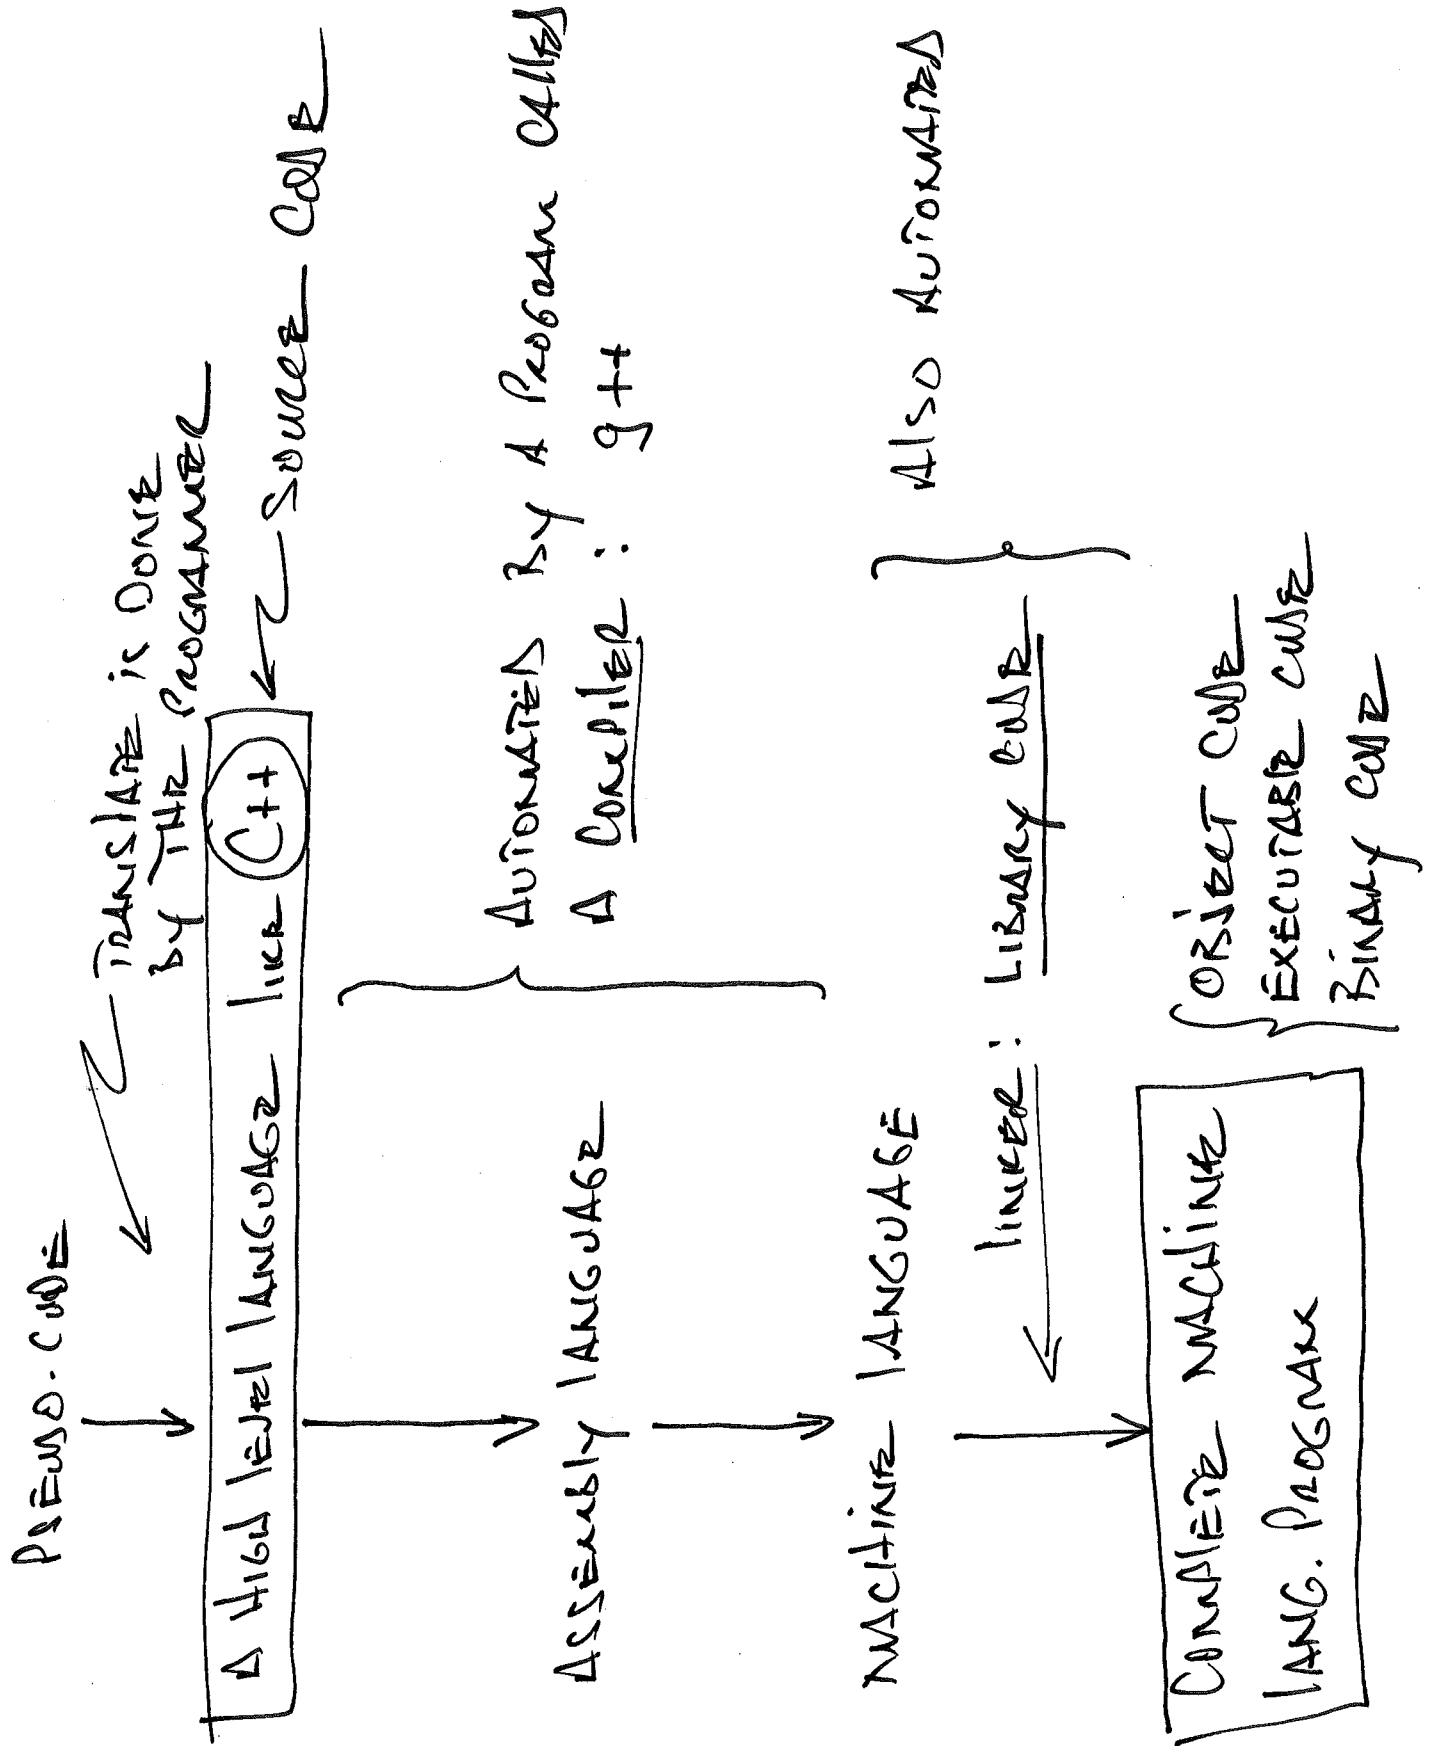 PSEUDO-CODE
TRANSLATE IS DONE
BY THE PROGRAMMER
A HIGH LEVEL LANGUAGE LIKE C++
SOURCE CODE
AUTOMATED BY A PROGRAM CALLED
A COMPILER: g++
ASSEMBLY LANGUAGE
MACHINE LANGUAGE
LINKER: LIBRARY CODE
ALSO AUTOMATED
COMPLETE MACHINE
LANG. PROGRAM
OBJECT CODE
EXECUTABLE CODE
BINARY CODE